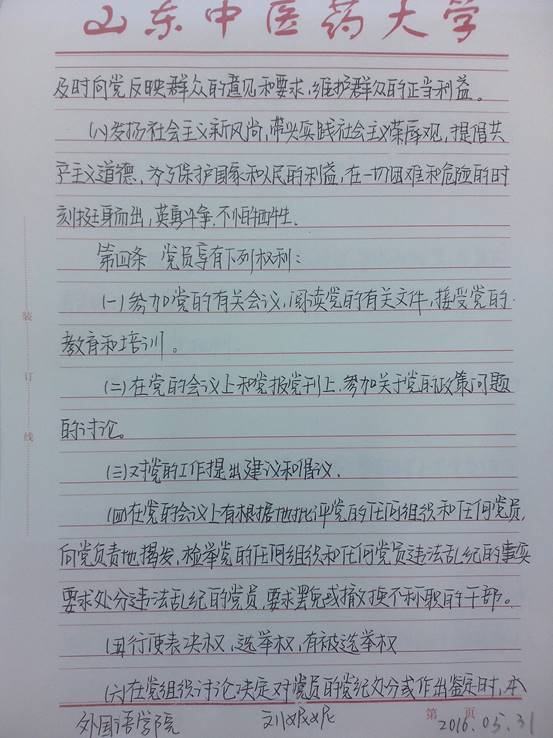 山东中医药大学
及时向党反映群众的意见和要求,维护群众的正当利益。
(八)发扬社会主义新风尚,带头实践社会主义荣辱观,提倡共
产主义道德,为了保护国家和人民的利益,在一切困难和危险的时
刻挺身而出,英勇斗争,不怕牺牲.
第四条 党员享有下列权利:
(一)参加党的有关会议,阅读党的有关文件,接受党的
教育和培训。
(二)在党的会议上和党报党刊上,参加关于党的政策问题
的讨论。
(三)对党的工作提出建议和倡议.
(四)在党的会议上有根据地批评党的任何组织和任何党员,
向党负责地揭发,检举党的任何组织和任何党员违法乱纪的事实
要求处分违法乱纪的党员,要求罢免或撤换不称职的干部。
(五)行使表决权、选举权,有被选举权
(六)在党组织讨论决定对党员的党纪处分或作出鉴定时,本
装
订
线
第 页
外国语学院 2016.05.31